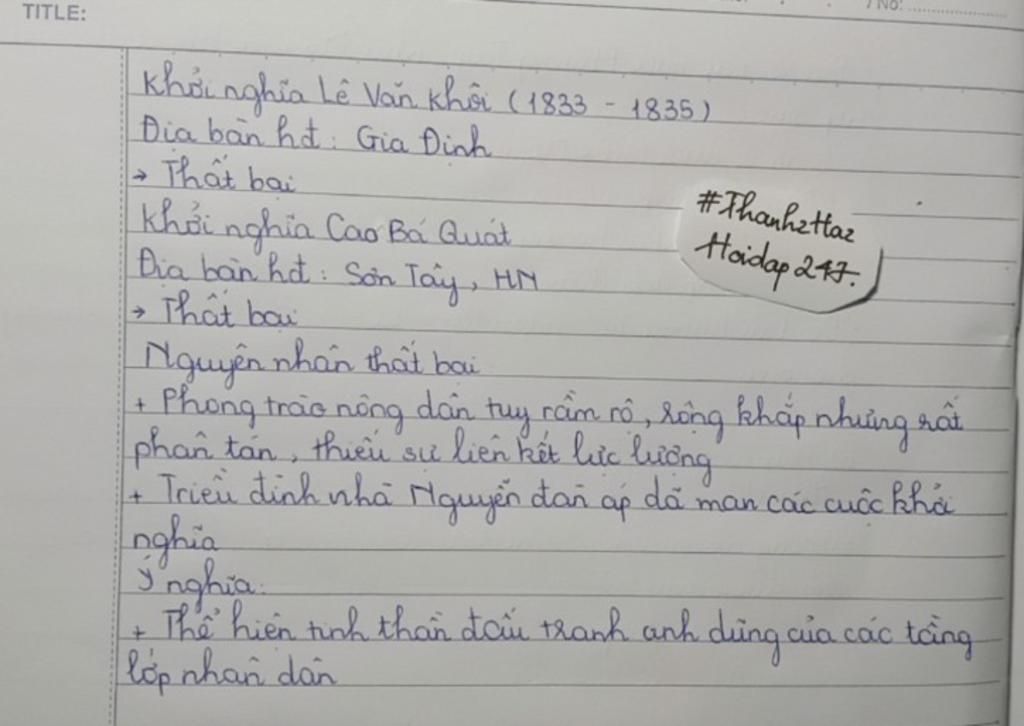 TITLE:
/ No:
Khởi nghĩa Lê Văn Khôi (1833 - 1835)
Địa bàn hđ: Gia Định
→ Thất bại
Khởi nghĩa Cao Bá Quát
Địa bàn hđ: Sơn Tây, HN
→ Thất bại
#ThanhzHaz
Hoidap247.
Nguyên nhân thất bại
+ Phong trào nông dân tuy rầm rộ, rộng khắp nhưng rất
phân tán, thiếu sự liên kết lực lượng
+ Triều đình nhà Nguyễn đàn áp dã man các cuộc khởi
nghĩa
Ý nghĩa:
+ Thể hiện tinh thần đấu tranh anh dũng của các tầng
lớp nhân dân